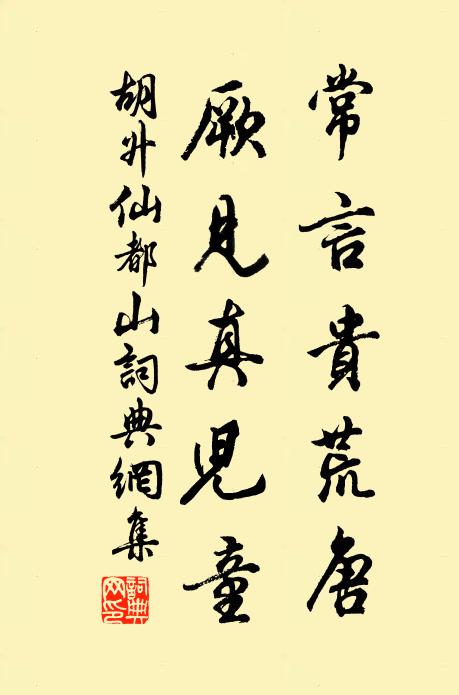 常言貴荒唐
厥見真兒童
胡升仙都山詞典網集
詞典
网印